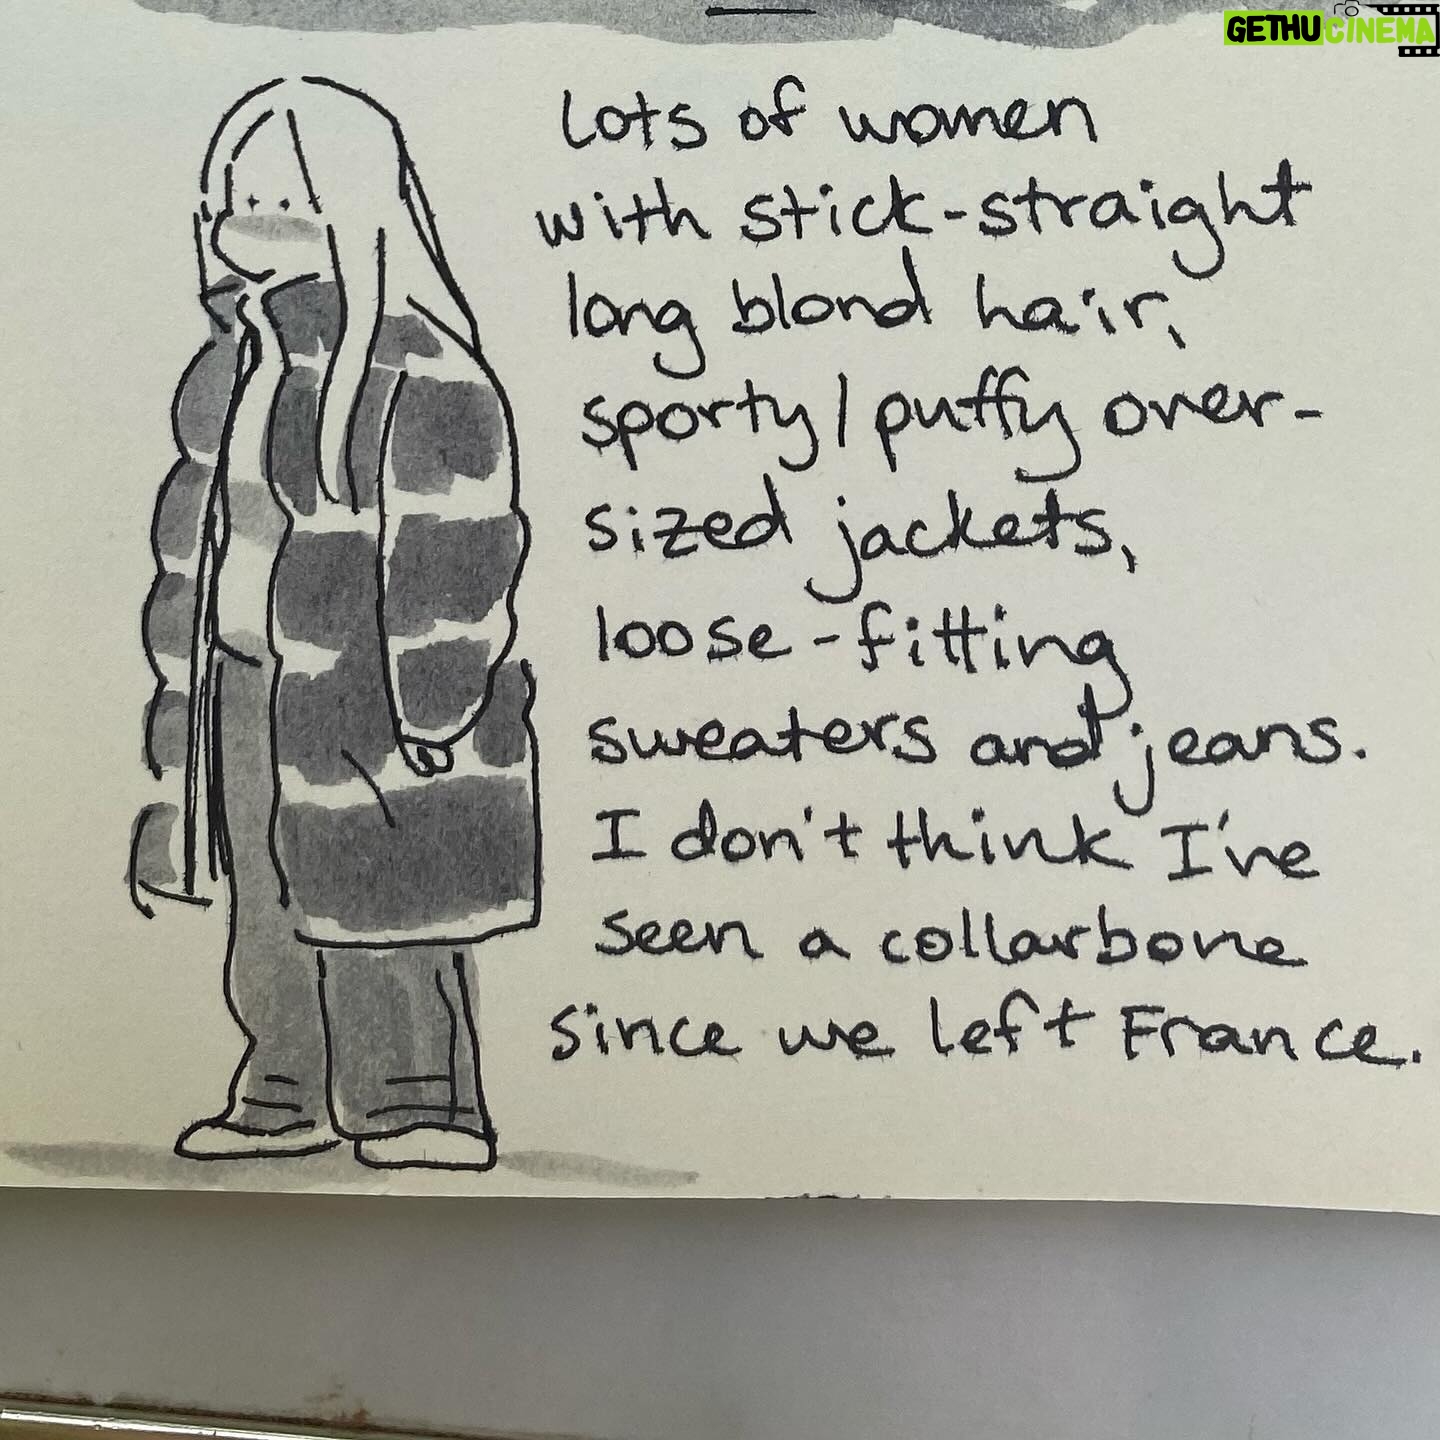 GETHU CINEMA
lots of women
with stick-straight
long blond hair,
sporty/puffy over-
sized jackets,
loose-fitting
sweaters and jeans.
I don't think I've
seen a collarbone
since we left France.